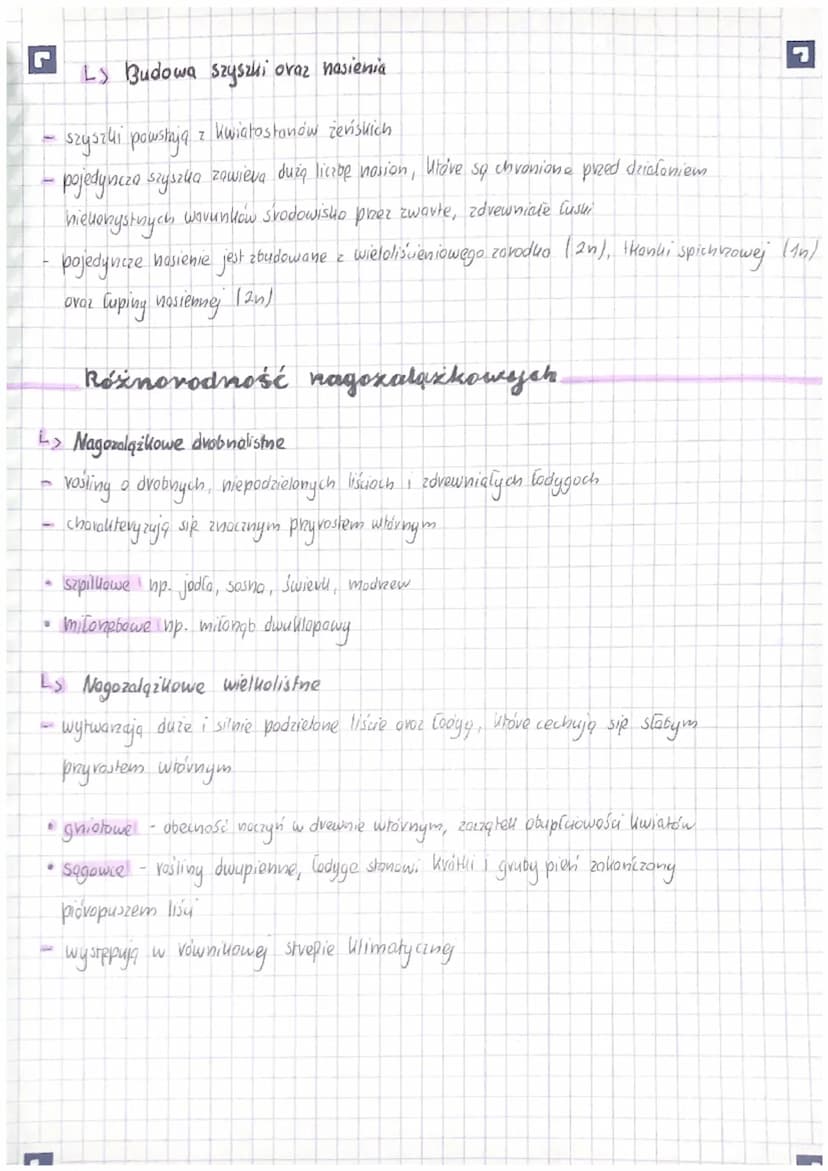 ↳ Budowa szyszki oraz nasienia
- szyszki powstają z kwiatostanów żeńskich
- pojedyncza szyszka zawiera dużą liczbę nasion, które są chronione przed działaniem
niekorzystnych warunków środowiska przez zwarte, zdrewniałe łuski
- pojedyncze nasienie jest zbudowane z wieloliścieniowego zarodka (2n), tkanki spichrzowej (1n)
oraz łupiny nasiennej (2n)
Różnorodność nagozalążkowych
↳ Nagozalążkowe drobnolistne
- rośliny o drobnych, niepodzielonych liściach i zdrewniałych łodygach
- charakteryzują się znacznym przyrostem wtórnym
• szpilkowe np. jodła, sosna, świerk, modrzew
• miłorzębowe np. miłorząb dwuklapowy
↳ Nagozalążkowe wielkolistne
- wytwarzają duże i silnie podzielone liście oraz łodygę, które cechują się słabym
przyrostem wtórnym
• gniotowe - obecność naczyń w drewnie wtórnym, zaczątek obupłciowości kwiatów
• sagowce - rośliny dwupienne, łodygę stanowi krótki i gruby pień zakończony
pióropuszem liści
- występują w równikowej strefie klimatycznej